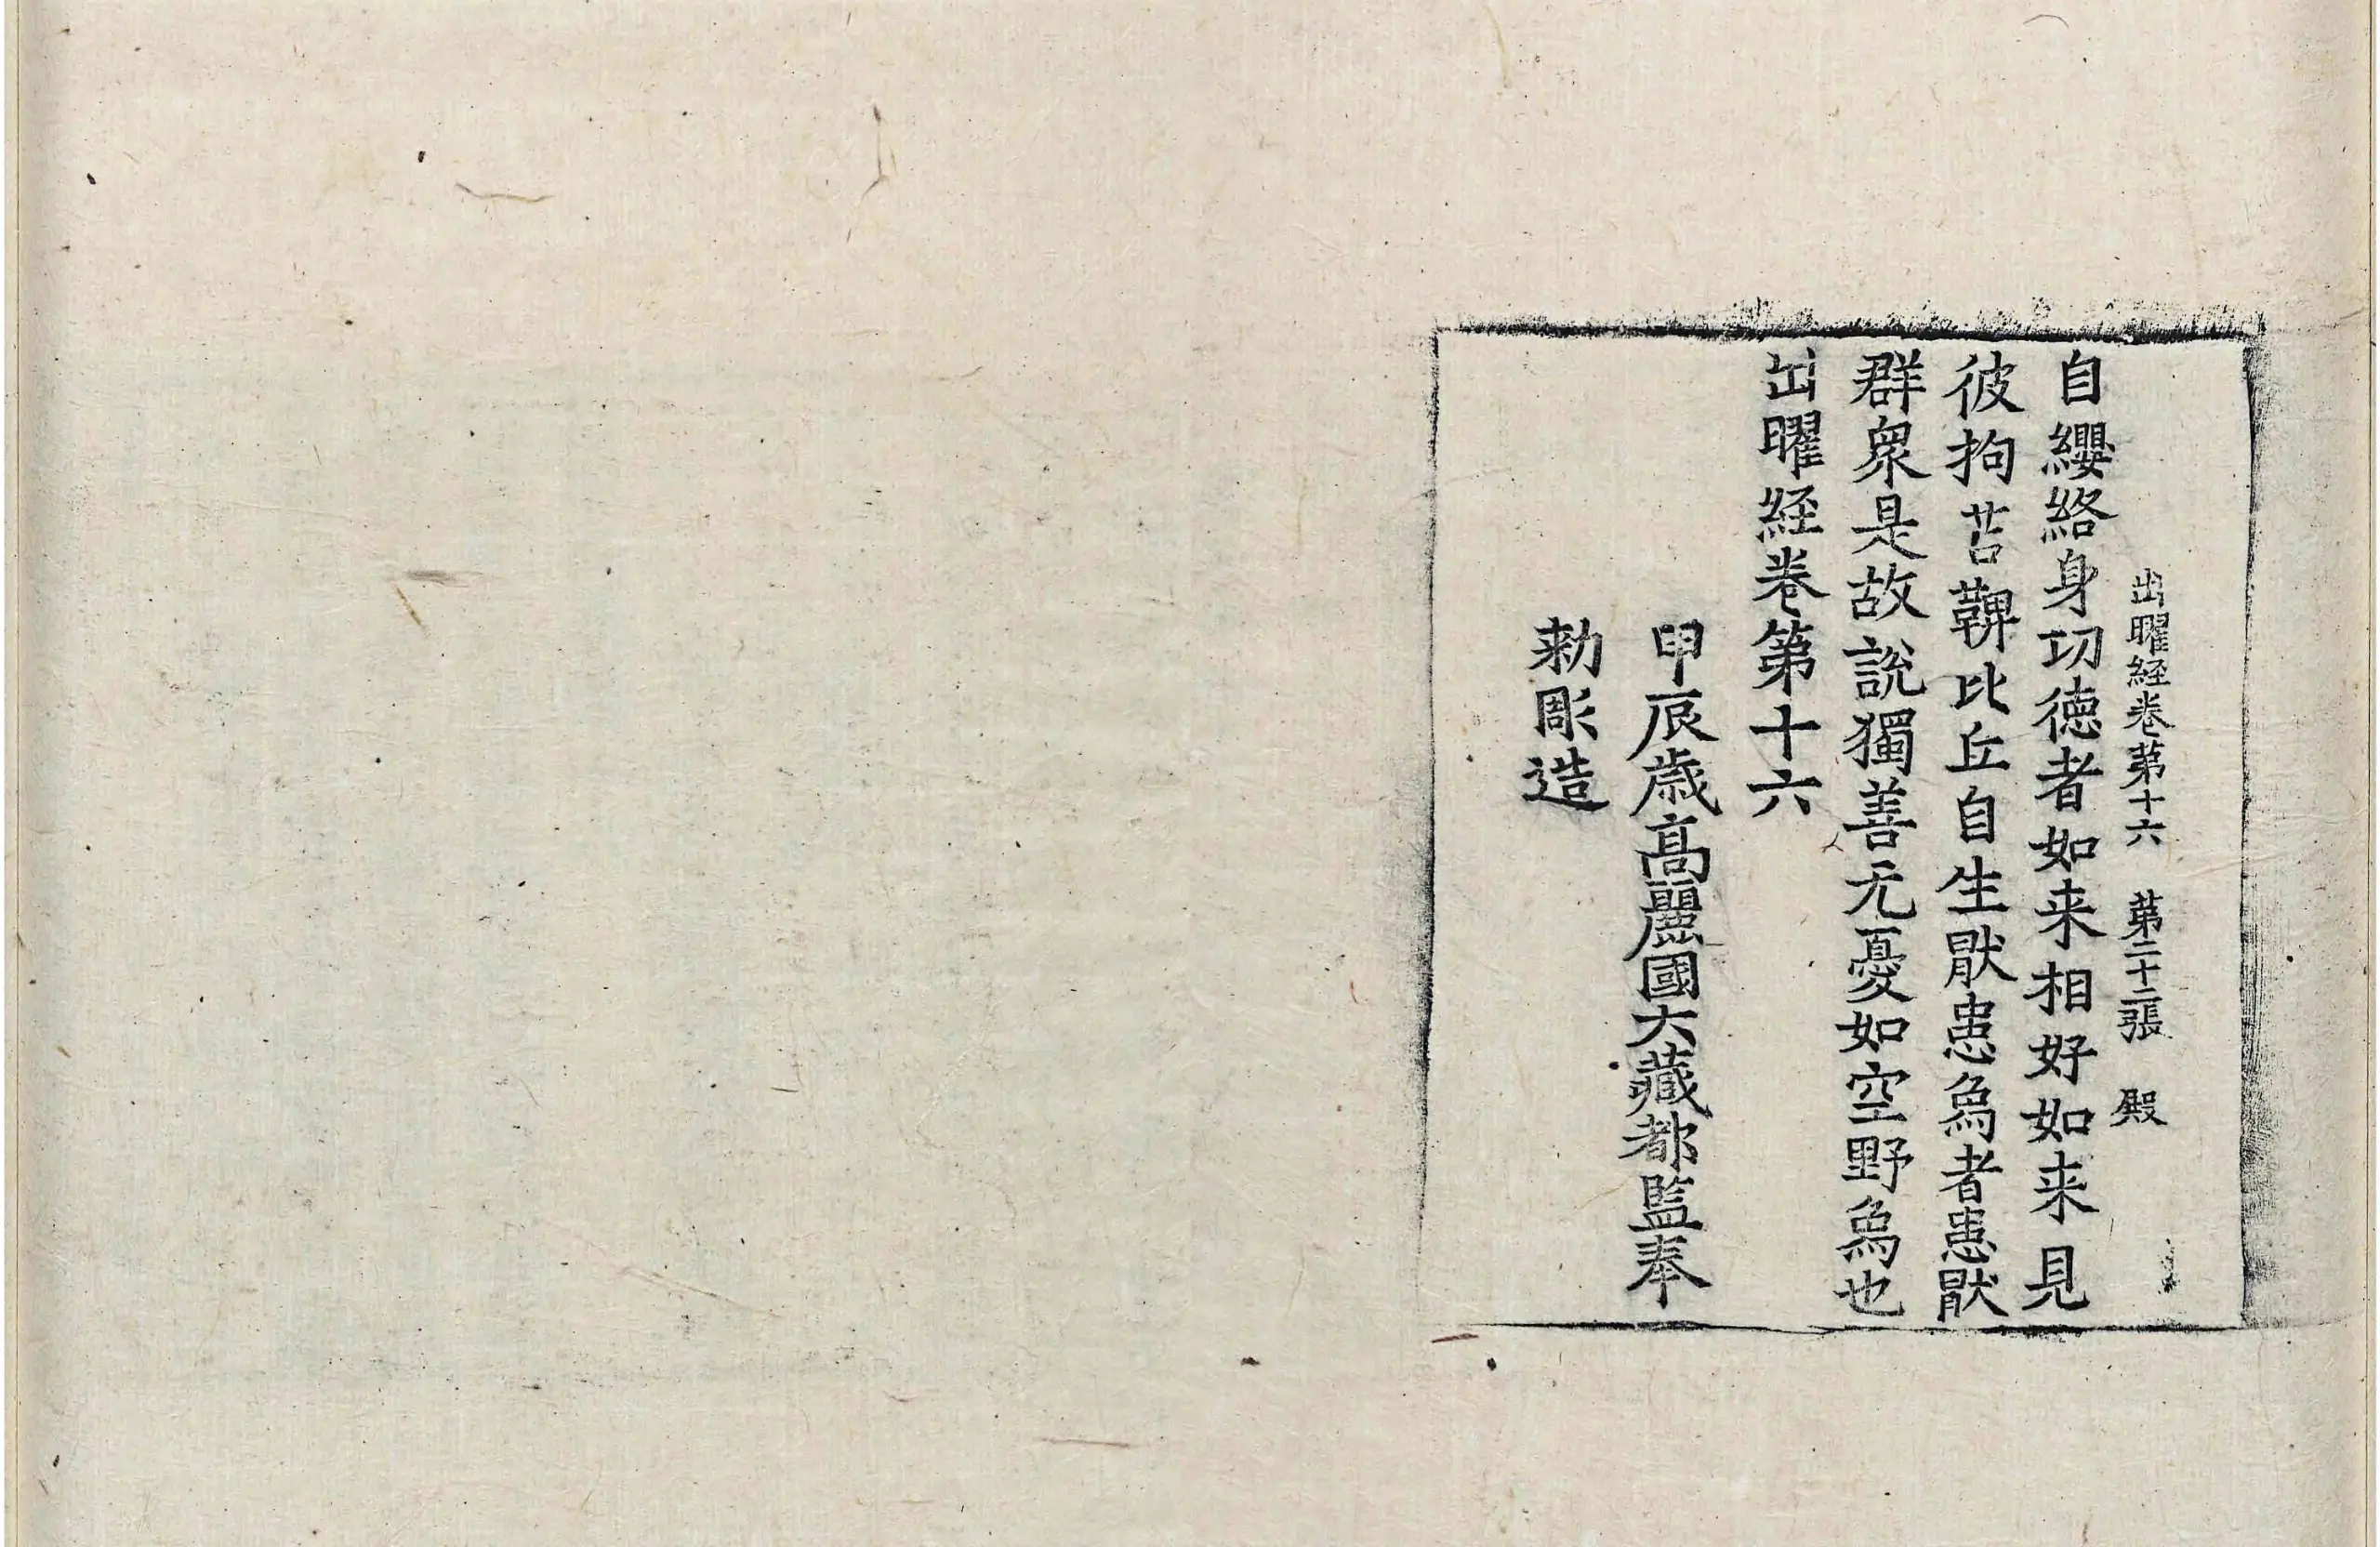 出曜経卷第十六　第二十二張　殿
自纓絡身切德者如来相好如来見
彼拘苫鞞比丘自生猒患為者患猒
群衆是故説獨善无憂如空野為也
出曜経卷第十六
甲辰歳髙麗國大藏都監奉
勅彫造